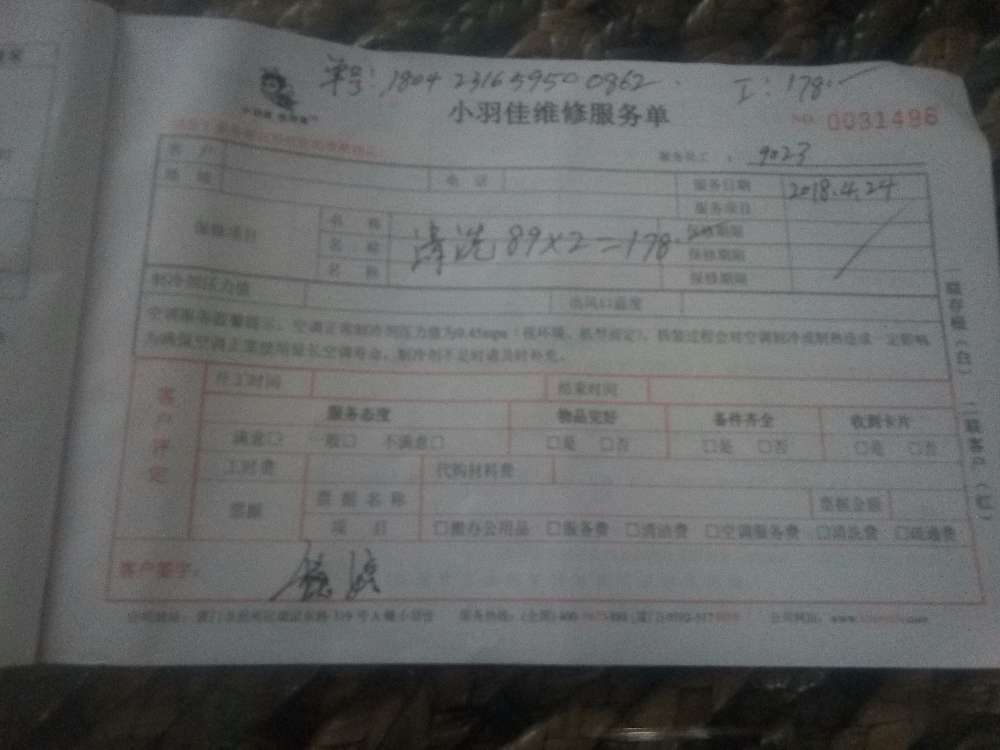 单号:1804 2316 5950 0862. 工:178.
小羽佳维修服务单 NO. 0031496
服务员工: 9023
客户
地址 电话 服务日期 2018.4.24
服务项目
保修项目 名称 保修期限
名称 清洗 89×2=178. 保修期限
名称 保修期限
制冷剂压力值 出风口温度
空调服务温馨提示:空调正常制冷剂压力值为0.45mpa
为确保空调正常使用延长空调寿命,制冷剂不足时请及时补充。
开工时间 结束时间
客户评定
服务态度 物品完好 备件齐全 收到卡片
满意□ 一般□ 不满意□ □是 □否 □是 □否 □是 □否
工时费 代购材料费
票据 票据名称 票据金额
项目 □办公用品 □服务费 □清洁费 □空调服务费 □清洗费 □疏通费
客户签字:
一联存根(白) 二联客户(红)
公司地址: 服务热线:(全国)400 公司网址:www.